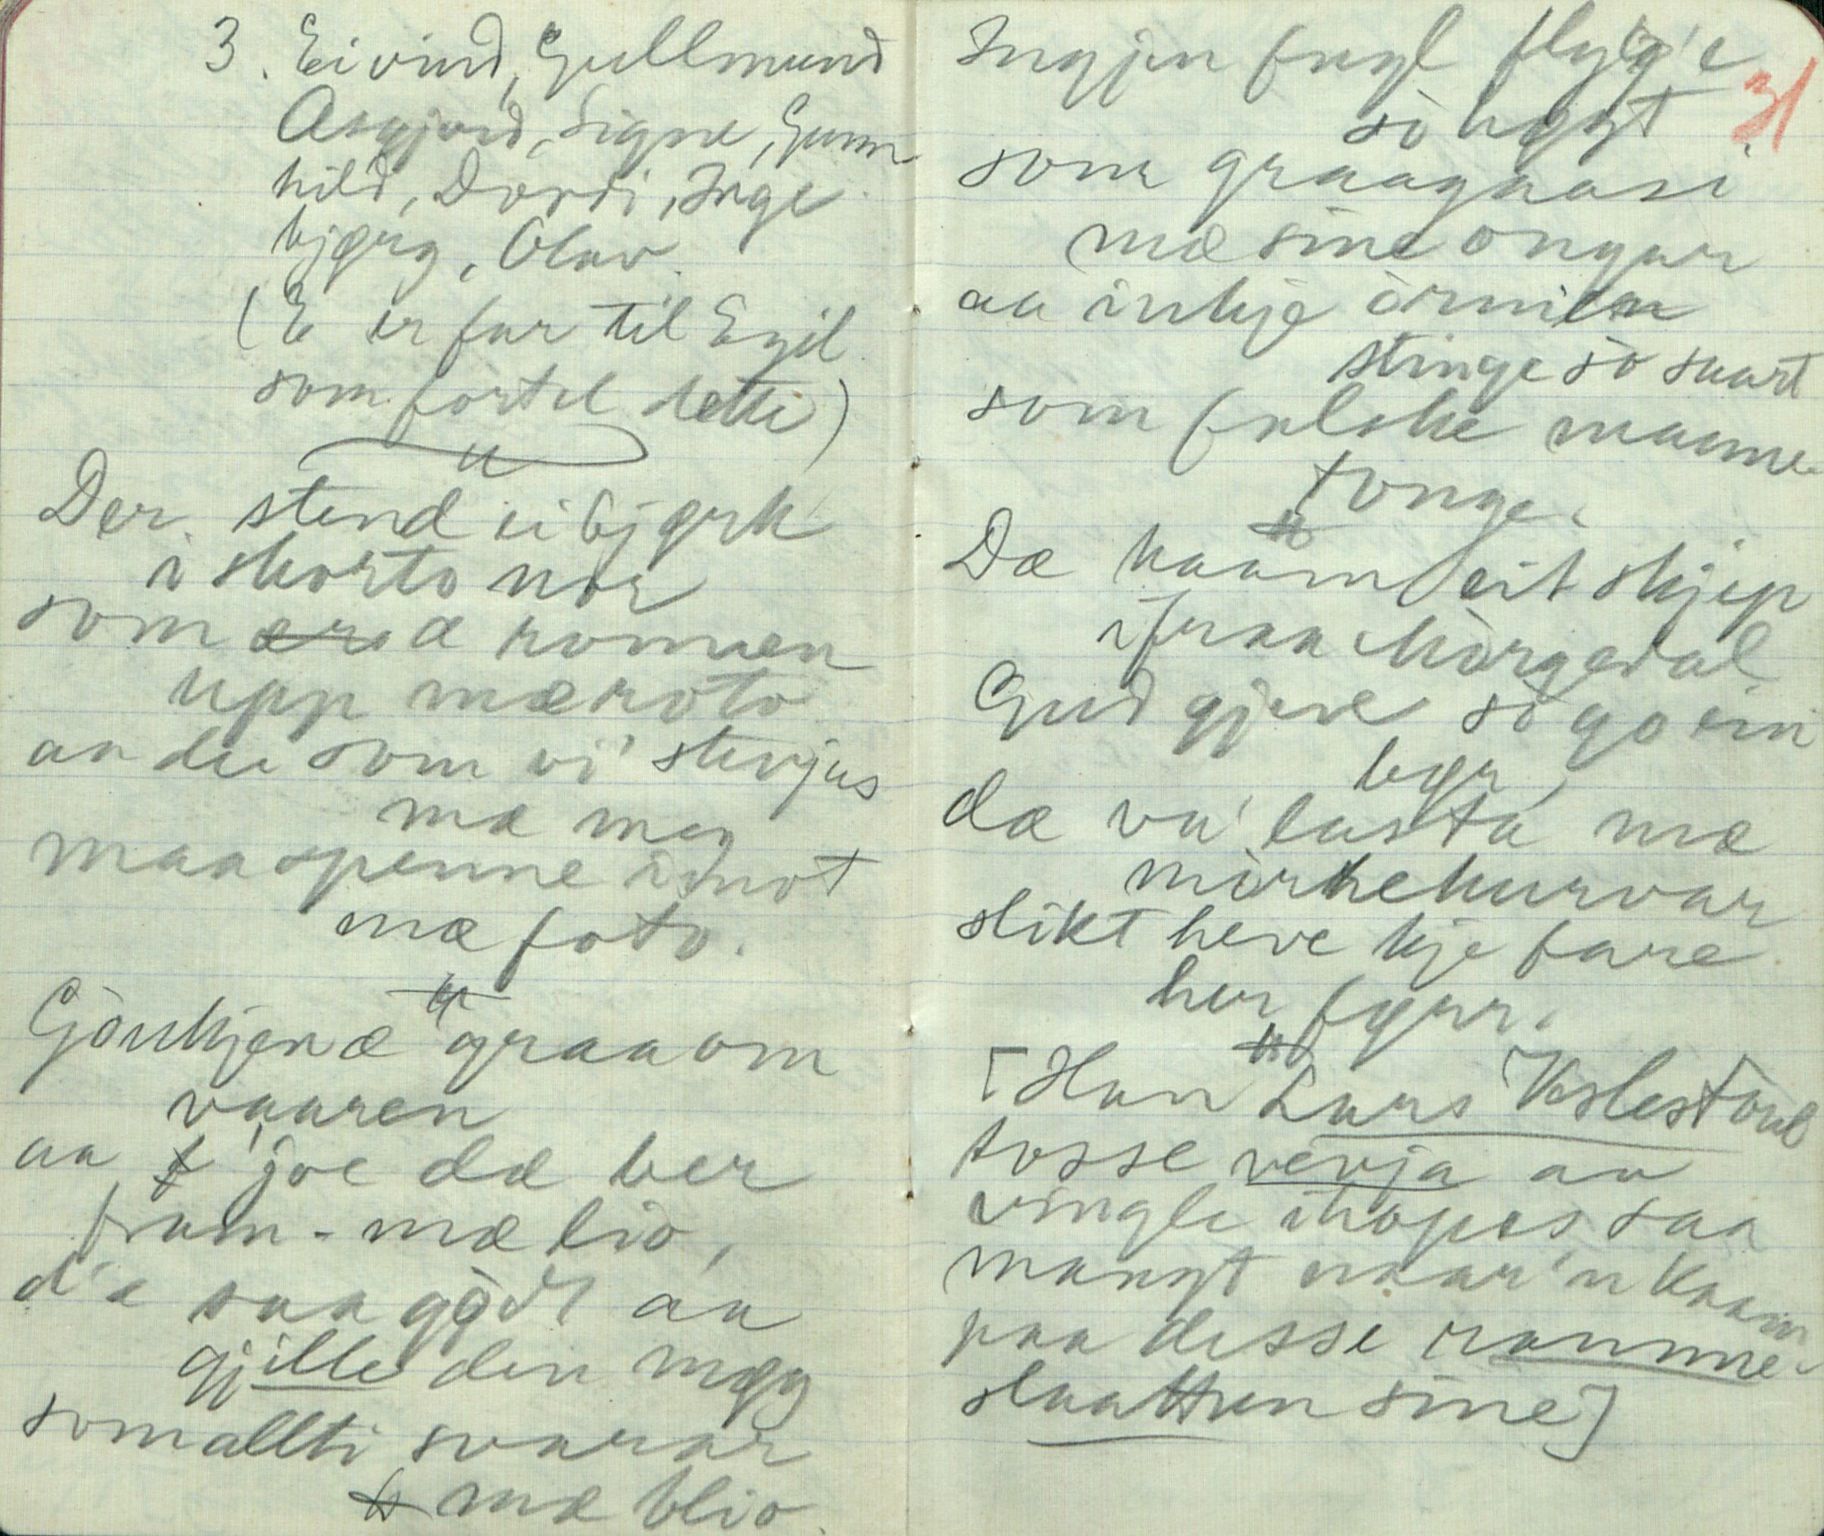 3. Eivind, Gullmund
Asgjerd, Signe, Gunn
hild, Dordi, Inge
bjørg, Olav.
(E er far til Egil
som fortel dette)
"
Der stend ei bjørk
i skorto nor
som æ romen
upp mæ roto
aa dei som vi' stevjas
mæ meg
maa spenne imot
mæ foto.
"
Gòukjen æ graa om
vaaren
aa joe dæ ber
fram-mæ lio,
d'æ saa gòdt aa
gjille den møy
som allti svarar
mæ blio.
Ingjen fugl flyg'e
sò høgt
31
som graagaasi
mæ sine ongar
aa inkje òrmen
stinge sò saart
som falske manne
tonge.
"
Dæ kaam eit skjep
ifraa Mòrgedal
Gud gjeve sò go ein
bør,
dæ va' lasta mæ
mòrkekurvar
slikt heve kje fare
her fyrr.
"
[Han Lars Veslestòul
tosse vevja aa
vingle ihopes saa
mangt naar'n kaam
paa desse ramme-
slaattun sine]